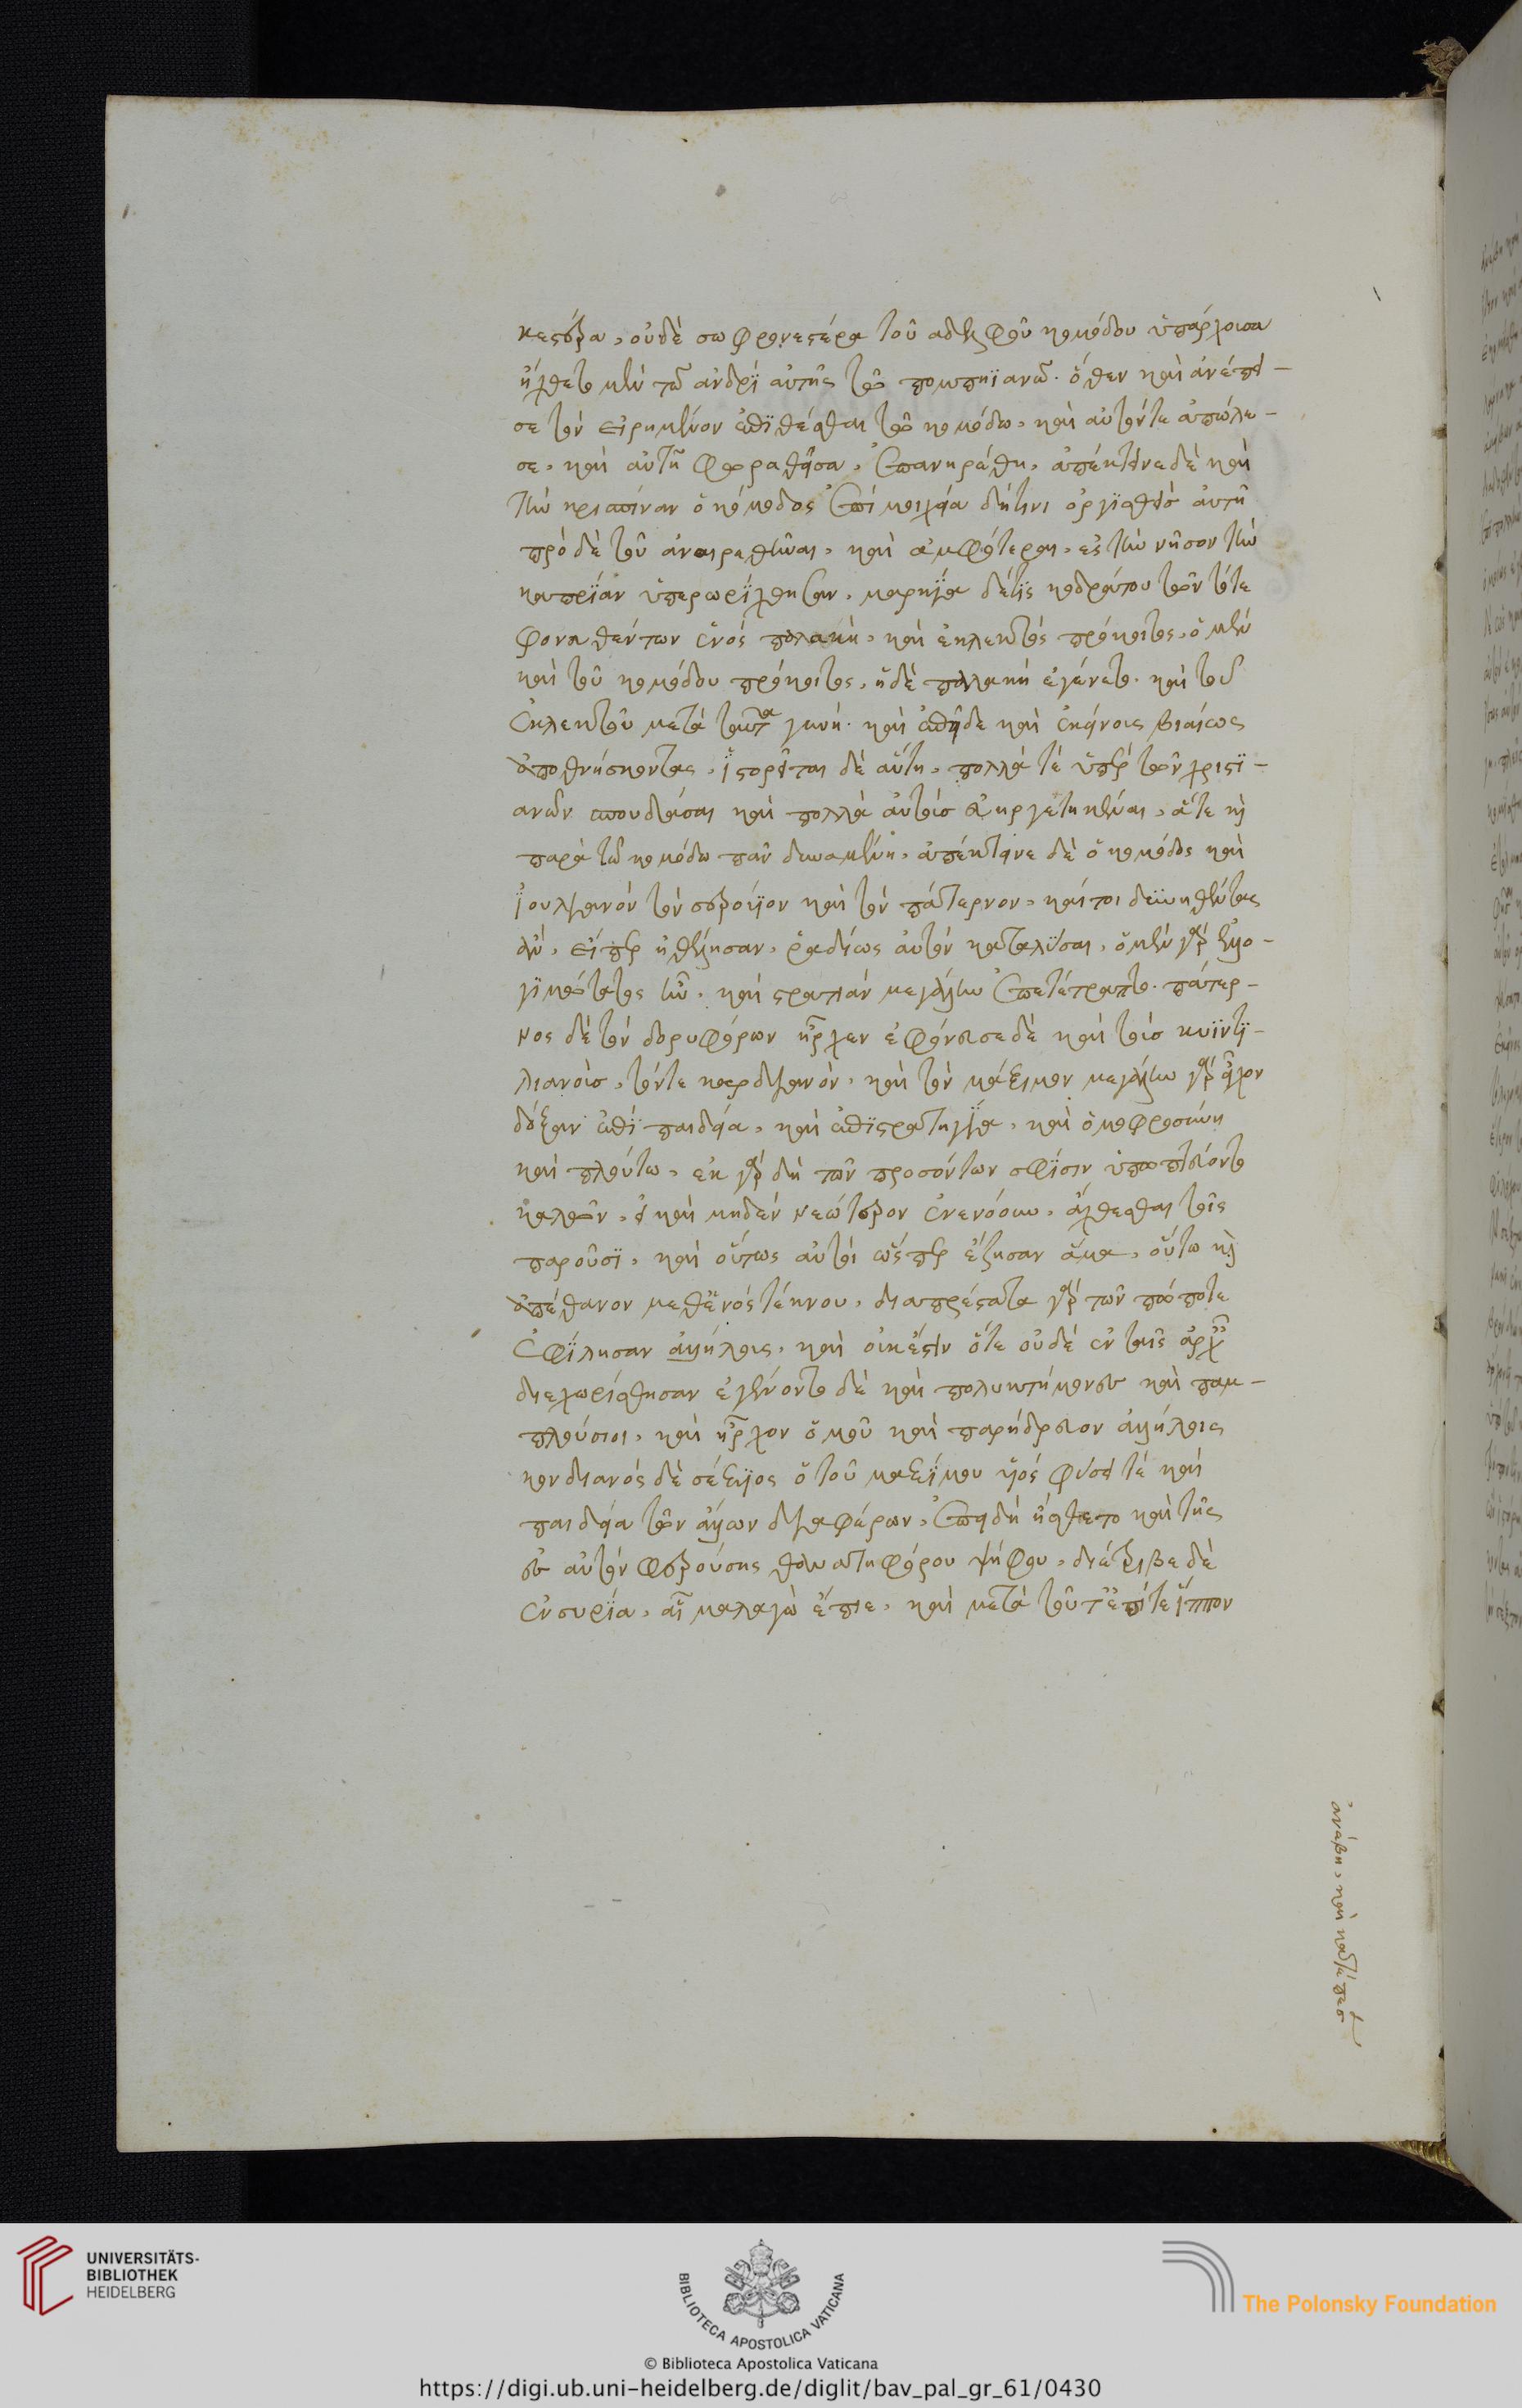 κεστέρα, οὐδὲ σωφρονεστέρα τοῦ αδελφοῦ κομόδου ὑπάρχουσα
ἤχθετο μὲν τῶ ἀνδρῒ αὐτῆς τῶ πομπηϊανῶ. ὅθεν καὶ ἀνέπει-
σε τὸν ειρημένον ἐπϊθέσθαι τῶ κομόδω, καὶ αὐτόν τε ἀπώλε-
σε, καὶ αὐτὴ φωραθεῖσα, ἐπανηρέθη, ἀπέκτεινε δὲ καὶ
τὴν κρισπίναν ὁ κόμοδος ἐπί μοιχεία δή τινι ὀργϊσθεὶσ αὐτῆ
πρὸ δὲ τοῦ ἀναιρεθῆναι, καὶ αμφότεραι, ες τὴν νῆσον τὴν
καπρίαν ὑπερωρίχθησαν, μαρκία δέ τϊς κοδράτου τῶν τότε
φονευθέντων ἑνός παλακὴ, καὶ ἐκλεκτὸς πρόκοιτος, ὁ μὲν
καὶ τοῦ κομόδου πρόκοιτος, ἡ δὲ παλλακὴ ἐγένετο. καὶ τοῦ
ἐκλεκτοῦ μετὰ ταῦτα γυνή. καὶ ἐπεῖδε καὶ ἐκείνους βιαίως
ἀποθνήσκοντας, ϊστορεῖται δὲ αὕτη, πολλά τὲ ὑπὲρ τῶν χριστϊ-
ανῶν σπουδάσαι καὶ πολλὰ αὐτοὺσ εὐηργετηκέναι, ἅτε κὶ
παρὰ τῶ κομόδω πᾶν δυναμένη, ἀπέκτεινε δὲ ὁ κομόδος καὶ
ϊουλϊανὸν τὸν σαλούϊον καὶ τὸν πάτερνον, καίτοι δυνηθέντας
ἂν, είπερ ἠθέλησαν, ῥαδίως ἀυτὸν καταλῦσαι, ὁ μὲν γὰρ ἐλλο-
γϊμώτατος ἦν, καὶ στρατιὰν μεγάλην ἐπετέτραπτο. πάτερ-
νος δὲ τὸν δορυφόρων ἦρχεν ἐφόνευσε δὲ καὶ τοὺσ κυϊντϊ-
λιανοὺσ, τόν τε κορδιανὸν, καὶ τὸν μάξιμον μεγάλην γὰρ εἶχον
δόξαν ἐπὶ παιδεία, καὶ ἐπϊστρατηγία, καὶ ὁμοφροσύνη
καὶ πλούτω, εκ γὰρ δὴ τῶν προσόντων σφΐσιν ὑπωπτεύοντο
καλῶν, εἰ καὶ μηδὲν νεώτερον ἐνενόουν, ἄχθεσθαι τοῖς
παροῦσϊ, καὶ οὕτως αὐτοὶ ὥσπερ ἔζησαν ἅμα, οὕτω κὶ
ἀπέθανον μεθ' ἑνός τέκνου, διαπρέστατα γὰρ τῶν πώποτε
ἐφϊλησαν ἀλλήλους, καὶ οὐκ ἔστιν ὅτε οὐδὲ ἐν ταῖς ἀρχαῖς
διεχωρίσθησαν ἐγένοντο δὲ καὶ πολυκτήμονες καὶ παμ-
πλούσιοι, καὶ ἦρχον ὁμοῦ καὶ παρήδρευον ἀλλήλοις
κονδιανός δὲ σέξτος ὁ τοῦ μαξίμου υἱός φύσει τὲ καὶ
παιδεία τῶν ἄλλων διαφέρων, ἐπειδὴ ἤσθετο καὶ τῆς
ἐς αὐτὸν φερούσης θανατηφόρου ψήφου, διέτριβε δὲ
ἐν συρία, αἷμα λαγὼ ἔπιε, καὶ μετὰ τοῦτ' ἐπί τε ἵππον
ἀνέβη, καὶ κατέπεσ
UNIVERSITÄTS-
BIBLIOTHEK
HEIDELBERG
BIBLIOTECA APOSTOLICA VATICANA
© Biblioteca Apostolica Vaticana
The Polonsky Foundation
https://digi.ub.uni-heidelberg.de/diglit/bav_pal_gr_61/0430